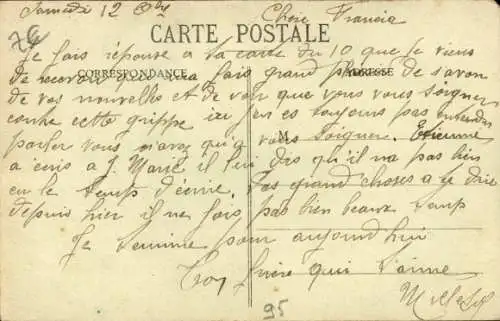 Samedi 12 Oby Chere Francia
76
CARTE POSTALE
Je fais réponse a ta carte du 10 que je viens
de recevoir qui ma fais grand plaisir de s'avoir
CORRESPONDANCE ADRESSE
de vos nouvelles et de voir que vous vous soigner
contre cette grippe ici j'en es toujours pas entendus
M
parler vous n'avez qu'a vous soigner. Etienne
a ecris a J. Marie il lui dis qh'il na pas bien
eu le temps d'écrire. Pas grand choses a te dire
depuis hier il ne fais pas bien beaux temp
Je termine pour aujourd'hui
Ton frère qui t'aime
95